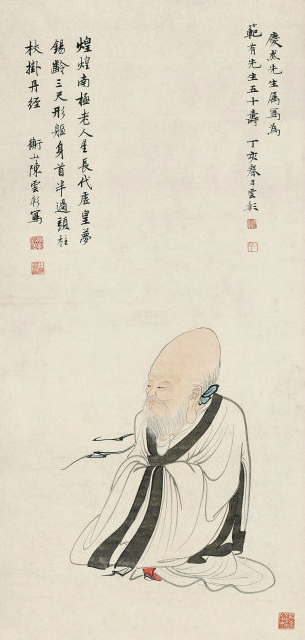 慶先生属寫為
範有先生五十壽 丁亥春日雲彰
煌煌南極老人星長代虛皇夢
錫齡三尺形軀身首半過頭拄
杖掛丹經 衡山陳雲彰寫